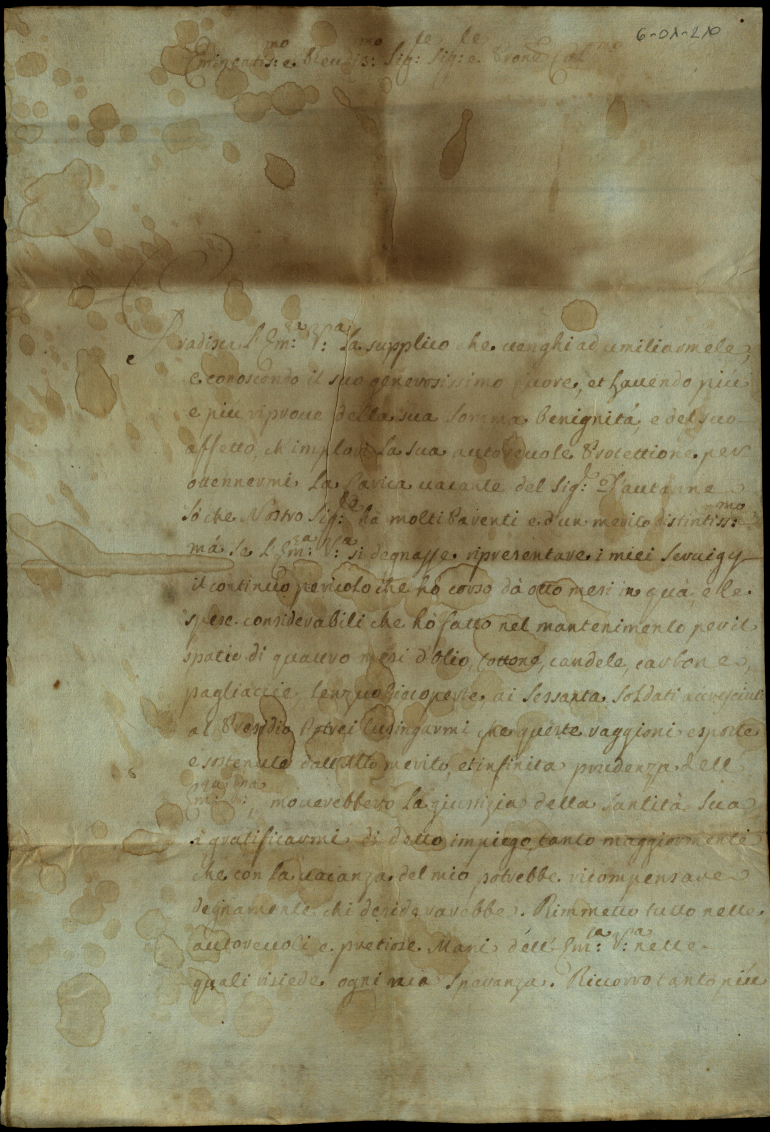 6-01-210
Eminentis:mo e Reudis:mo Sig:re Sig:re e Prone Col:mo
Gradisca l'Em:za V:ra la supplico che venghi ad umiliarmele,
e conoscendo il suo generosissimo Cuore, et havendo più
e più riprove della sua somma benignità, e del suo
affetto, ch'implori la sua autorevole Protettione per
ottenermi la Carica vacante del Sig:r
So che Nostro Sig:re ha molti Parenti e d'un merito distintiss:mo
mà se l'Em:za V:ra si degnasse ripresentare i miei Servigy
il continuo pericolo che hò corso dà otto mesi in quà, e le
spese considerabili che hò fatto nel mantenimento per il
spatio di quattro mesi d'olio, cottone, candele, carbone,
pagliaccie, lenzuoli, coperte ai sessanta soldati accresciuti
al Presidio Potrei lusingarmi che queste raggioni esposte
e sostenute dall'alto merito, et infinita prudenza dell
Em:za V:ra, moverebbero la giustizia della Santità Sua
à gratificarmi di detto impiego, tanto maggiormente
che con la vacanza del mio potrebbe ricompensare
degnamente chi desiderarebbe. Rimmetto tutto nelle
autorevoli e pretiose Mani dell'Em:za V:ra nelle
quali risiede ogni mia Speranza. Riccorro tanto più